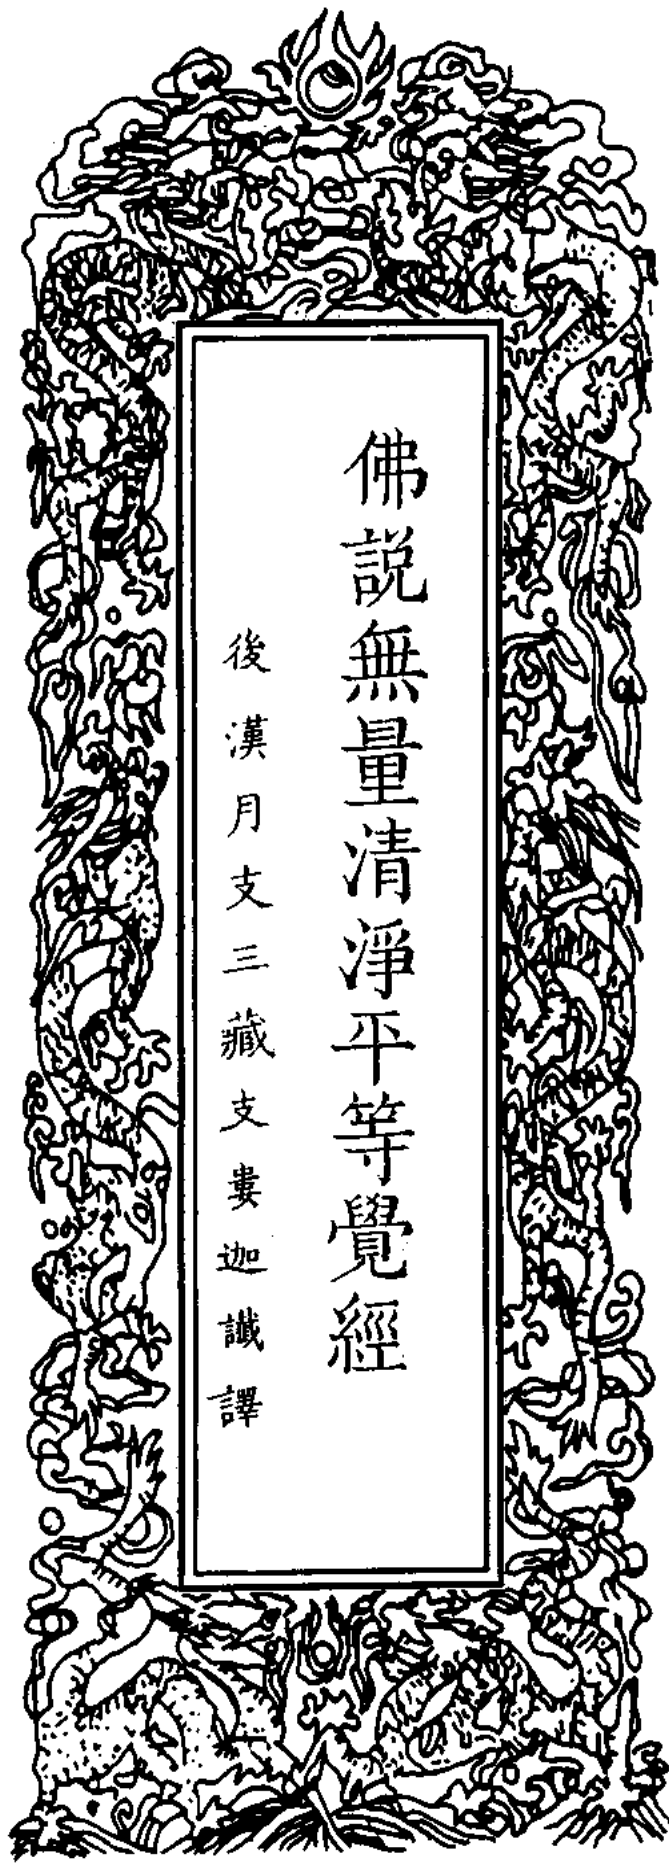 佛説無量清淨平等覺經
後漢月支三藏支婁迦讖譯